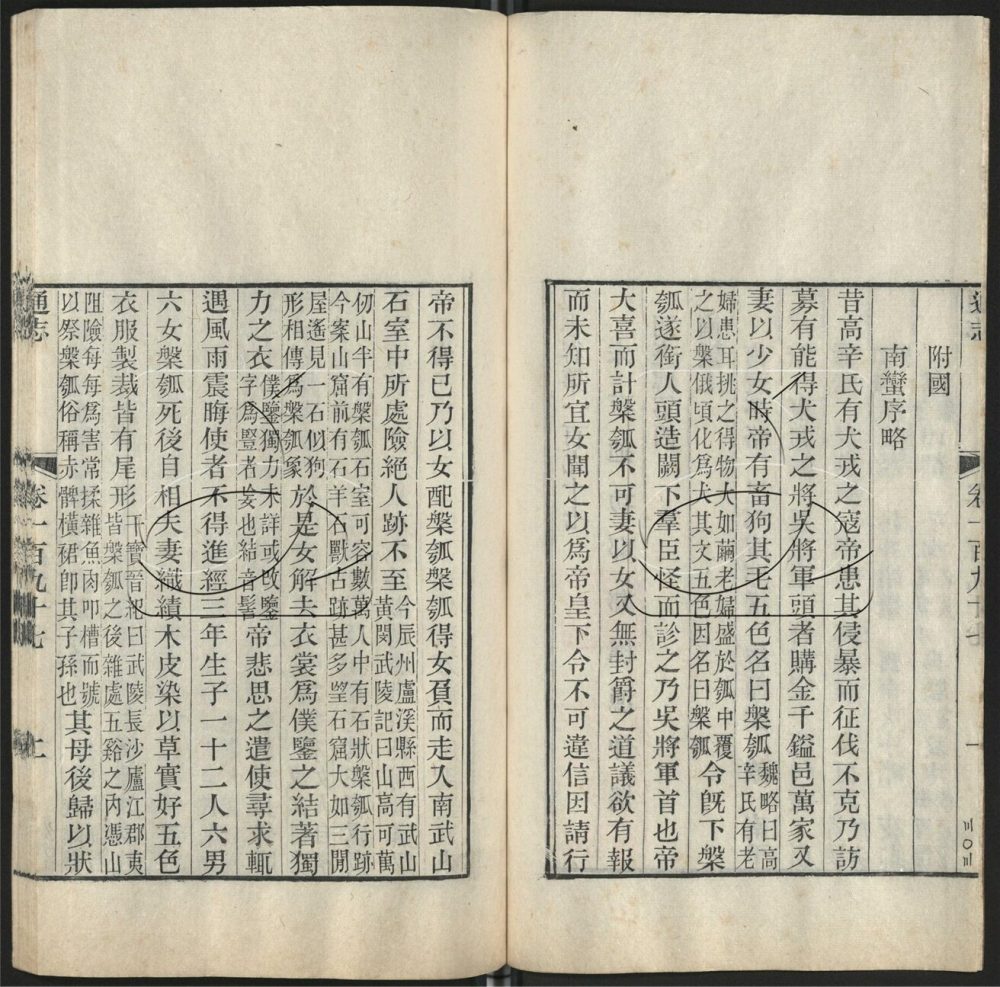 附國
南蠻序略
昔高辛氏有犬戎之寇帝患其侵暴而征伐不克乃訪
募有能得犬戎之將吳將軍頭者購金千鎰邑萬家又
妻以少女時帝有畜狗其毛五色名曰槃瓠魏略曰高辛氏有老
婦患耳挑之得物大如繭老婦盛於瓠中覆之以槃俄頃化爲犬其文五色因名曰槃瓠令旣下槃
瓠遂銜人頭造闕下羣臣怪而診之乃吳將軍首也帝
大喜而計槃瓠不可妻以女又無封爵之道議欲有報
而未知所宜女聞之以爲帝皇下令不可違信因請行
帝不得已乃以女配槃瓠槃瓠得女負而走入南武山
石室中所處險絕人跡不至今辰州盧溪縣西有武山黃閔武陵記曰山高可萬
仞山半有槃瓠石室可容數萬人中有石狀槃瓠行跡今案山窟前有石羊石獸古跡甚多望石窟大如三閒
屋遙見一石似狗形相傳爲槃瓠象於是女解去衣裳爲僕鑒之結著獨
力之衣僕鑒獨力未詳或改鑒字爲豎者妄也結音髻帝悲思之遣使尋求輒
遇風雨震晦使者不得進經三年生子一十二人六男
六女槃瓠死後自相夫妻織績木皮染以草實好五色
衣服製裁皆有尾形干寶晉紀曰武陵長沙廬江郡夷皆槃瓠之後雜處五谿之內憑山
阻險每每爲害常揉雜魚肉叩槽而號以祭槃瓠俗稱赤髀橫裙卽其子孫也其母後歸以狀
通志
卷一百九十七